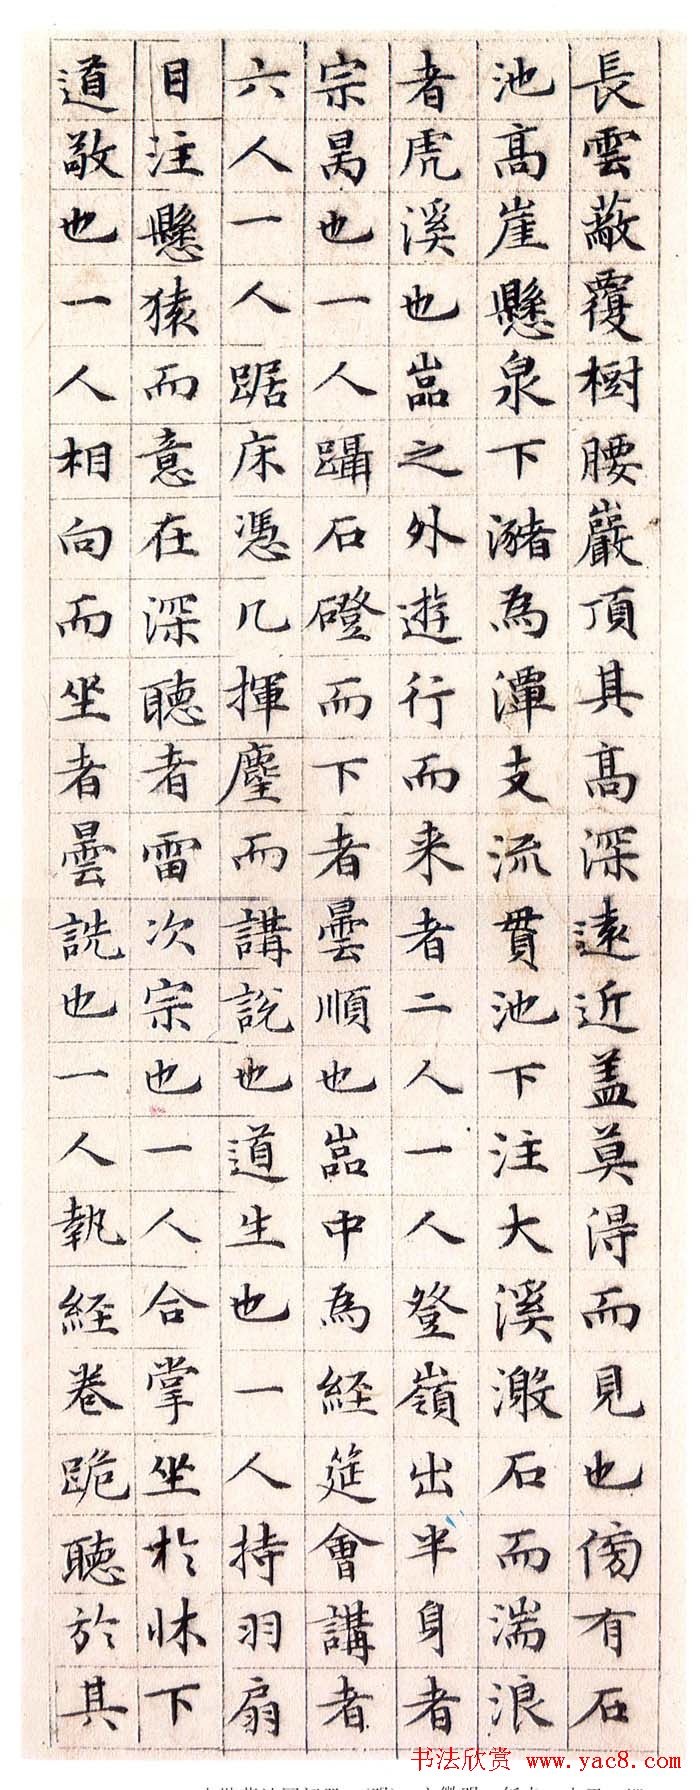 長雲蔽覆樹腰巖頂其高深遠近盖莫得而見也傍有石
池高崖懸泉下瀦為潭支流貫池下注大溪激石而湍浪
者虎溪也嵓之外遊行而来者二人一人登嶺出半身者
宗昺也一人躡石磴而下者曇順也嵓中為經筵會講者
六人一人踞床憑几揮麈而講說也道生也一人持羽扇
目注懸猿而意在深聽者雷次宗也一人合掌坐於牀下
道敬也一人相向而坐者曇詵也一人執經卷跪聽於其
书法欣赏 www.yac8.com